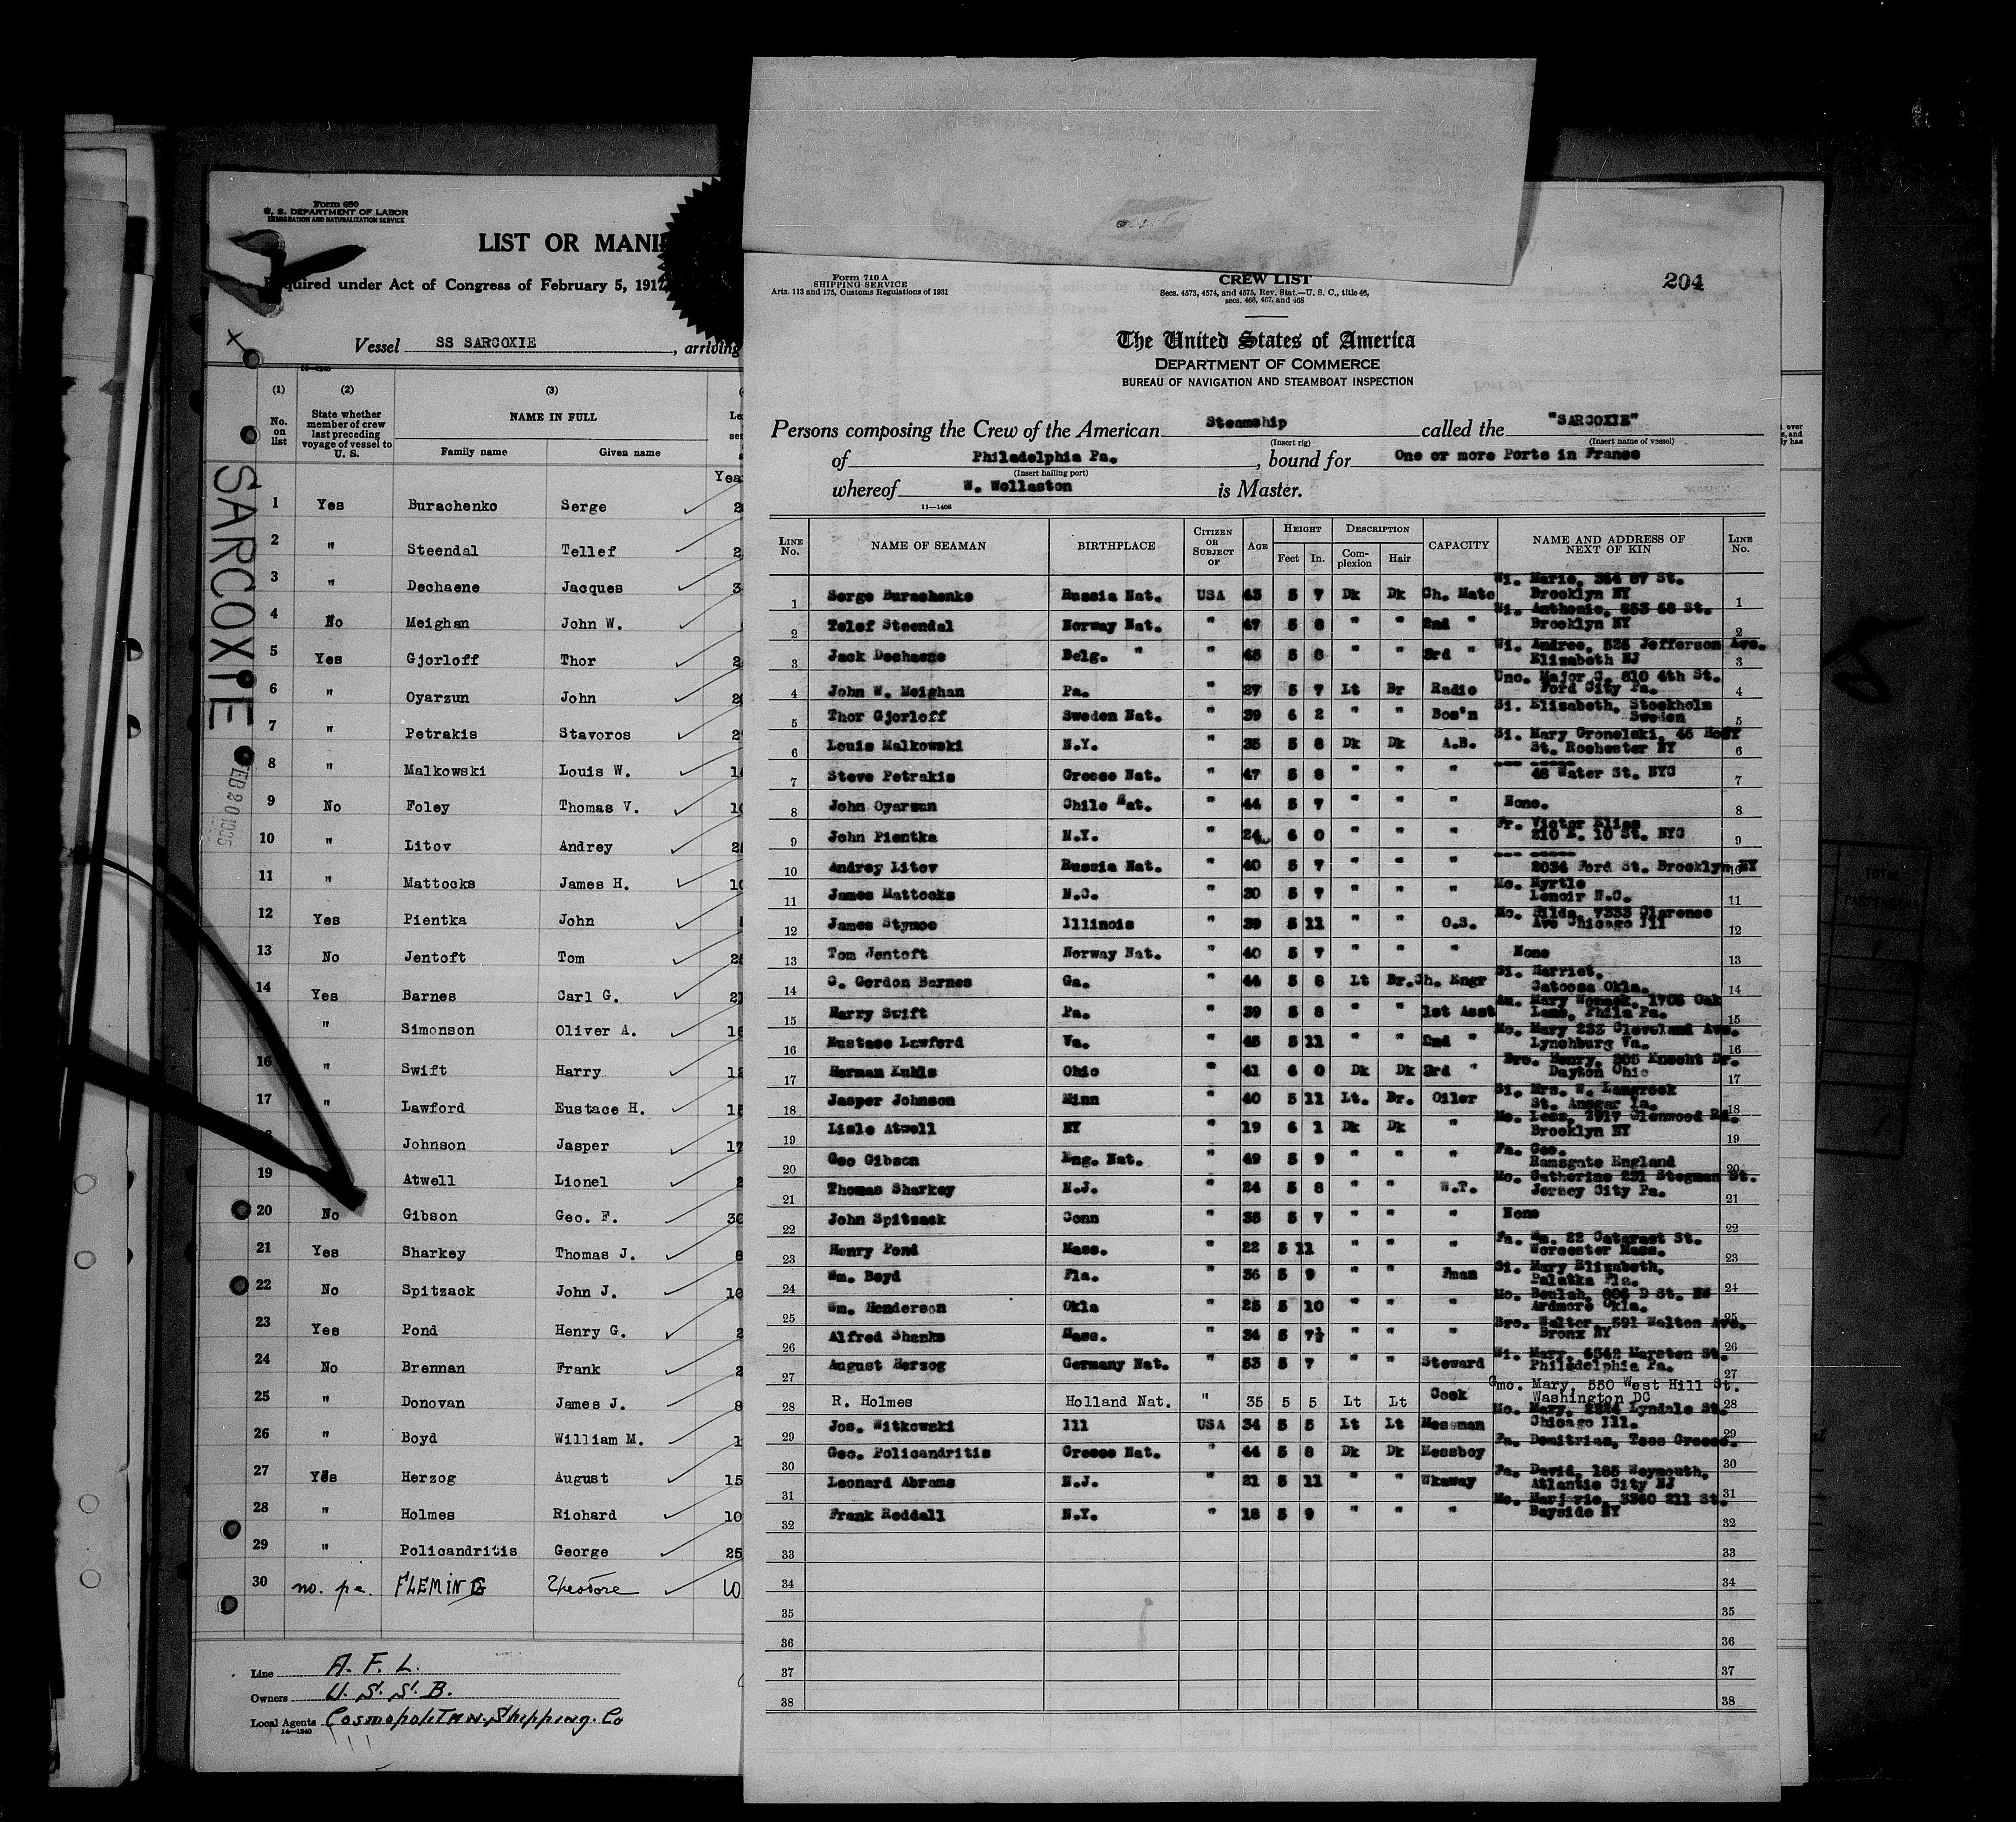 Form 680
U. S. DEPARTMENT OF LABOR
IMMIGRATION AND NATURALIZATION SERVICE
LIST OR MANI
quired under Act of Congress of February 5, 1917
Vessel SS SARCOXIE , arriving
(1) (2) (3)
No. on list State whether member of crew last preceding voyage of vessel to U. S. NAME IN FULL
Family name Given name
Yea
1 Yes Burachenko Serge
2 " Steendal Tellef
3 " Dechaene Jacques
4 No Meighan John W.
5 Yes Gjorloff Thor
6 " Oyarzun John
7 " Petrakis Stavoros
8 " Malkowski Louis W.
9 No Foley Thomas V.
10 " Litov Andrey
11 " Mattocks James H.
12 Yes Pientka John
13 No Jentoft Tom
14 Yes Barnes Carl G.
" Simonson Oliver A.
16 " Swift Harry
17 " Lawford Eustace H.
Johnson Jasper 17
19 Atwell Lionel
20 No Gibson Geo. F. 30
21 Yes Sharkey Thomas J. 8
22 No Spitzack John J. 10
23 Yes Pond Henry G. 2
24 No Brennan Frank 2
25 " Donovan James J. 8
26 " Boyd William M. 1
27 Yes Herzog August 15
28 " Holmes Richard 10
29 " Policandritis George 25
30 no. pe. FLEMING Theodore
Line A. F. L.
Owners U. S. S. B.
Local Agents Cosmopolitan Shipping. Co
14—1240
SARCOXIE
Form 710 A
SHIPPING SERVICE
Arts. 113 and 175, Customs Regulations of 1931
CREW LIST
Secs. 4573, 4574, and 4575, Rev. Stat.—U. S. C., title 46,
secs. 466, 467, and 468
204
The United States of America
DEPARTMENT OF COMMERCE
BUREAU OF NAVIGATION AND STEAMBOAT INSPECTION
Persons composing the Crew of the American Steamship called the "SARCOXIE"
(Insert rig) (Insert name of vessel)
of Philadelphia Pa. , bound for One or more Ports in France
(Insert hailing port)
whereof W. Wollaston is Master.
11—1408
LINE No. NAME OF SEAMAN BIRTHPLACE CITIZEN OR SUBJECT OF AGE HEIGHT Feet In. DESCRIPTION Complexion Hair CAPACITY NAME AND ADDRESS OF NEXT OF KIN LINE No.
1 Serge Burachenko Russia Nat. USA 43 5 7 Dk Dk Ch. Mate Wi. Marie, 364 87 St. Brooklyn NY 1
2 Telef Steendal Norway Nat. " 47 5 8 " " 2nd " Wi. Anthonie, 853 68 St. Brooklyn NY 2
3 Jack Dechaene Belg. " " 45 5 8 " " 3rd " Wi. Andree, 525 Jefferson Ave. Elizabeth NJ 3
4 John W. Meighan Pa. " 27 5 7 Lt Br Radio Unc. Major G. 810 4th St. Ford City Pa. 4
5 Thor Gjorloff Sweden Nat. " 39 6 2 " " Bos'n Si. Elizabeth, Stockholm Sweden 5
6 Louis Malkowski N.Y. " 35 5 8 Dk Dk A.B. Si. Mary Gronelski, 45 St. Rochester NY 6
7 Steve Petrakis Greece Nat. " 47 5 8 " " " --- ----- 48 Water St. NYC 7
8 John Oyarzun Chile Nat. " 44 5 7 " " " None. 8
9 John Pientka N.Y. " 24 6 0 " " " Fr. Victor Elias 210 E. 10 St. NYC 9
10 Andrey Litov Russia Nat. " 40 5 7 " " " --- ----- 2034 Ford St. Brooklyn NY 10
11 James Mattocks N.C. " 30 5 7 " " " Mo. Myrtle Lenoir N.C. 11
12 James Stymoe Illinois " 39 5 11 " " O.S. Mo. Hilda, 7333 Clarence Ave Chicago Ill 12
13 Tom Jentoft Norway Nat. " 40 5 7 " " " None 13
14 C. Gordon Barnes Ga. " 44 5 8 Lt Br. Ch. Engr Si. Harriet, Catoosa Okla. 14
15 Harry Swift Pa. " 39 5 8 " " 1st Asst Au. Mary Womack, 1705 Oak Lane, Phila Pa. 15
16 Eustace Lawford Va. " 45 5 11 " " 2nd " Mo. Mary 233 Cleveland Ave. Lynchburg Va. 16
17 Herman Kuhls Ohio " 41 6 0 Dk Dk 3rd " Bro. Henry, 805 Knecht Dr. Dayton Ohio 17
18 Jasper Johnson Minn " 40 5 11 Lt. Br. Oiler Si. Mrs. W. Langrock St. Ansgar Ia. 18
19 Lisle Atwell NY " 19 6 1 Dk Dk " Mo. Less, 1917 Glenwood Rd. Brooklyn NY 19
20 Geo Gibson Eng. Nat. " 49 5 9 " " " Fa. Geo. Ramsgate England 20
21 Thomas Sharkey N.J. " 24 5 8 " " W.T. Mo. Catherine 231 Stegman St. Jersey City Pa. 21
22 John Spitzack Conn " 35 5 7 " " " None 22
23 Henry Pond Mass. " 22 5 11 " " " Fa. Wm. 22 Cataract St. Worcester Mass. 23
24 Wm. Boyd Fla. " 36 5 9 " Fman Si. Mary Elizabeth, Palatka Fla. 24
25 Wm. Henderson Okla " 25 5 10 " " " Mo. Beulah, 806 D St. NW Ardmore Okla. 25
26 Alfred Shanks Mass. " 34 5 7½ " " " Bro. Walter, 591 Walton Ave. Bronx NY 26
27 August Herzog Germany Nat. " 53 5 7 " " Steward Wi. Mary, 6342 Marsten St. Philadelphia Pa. 27
28 R. Holmes Holland Nat. " 35 5 5 Lt Lt Cook Gmo. Mary, 550 West Hill St. Washington DC 28
29 Jos. Witkowski Ill USA 34 5 5 Lt Lt Messman Mo. Mary, 2224 Lyndale St. Chicago Ill. 29
30 Geo. Policandritis Greece Nat. " 44 5 8 Dk Dk Messboy Fa. Demitrius, Teos Greece. 30
31 Leonard Abrams N.J. " 21 5 11 " " Wkaway Fa. David, 185 Weymouth, Atlantic City NJ 31
32 Frank Reddall N.Y. " 18 5 9 " " " Mo. Marjorie, 3360 211 St. Bayside NY 32
33 33
34 34
35 35
36 36
37 37
38 38